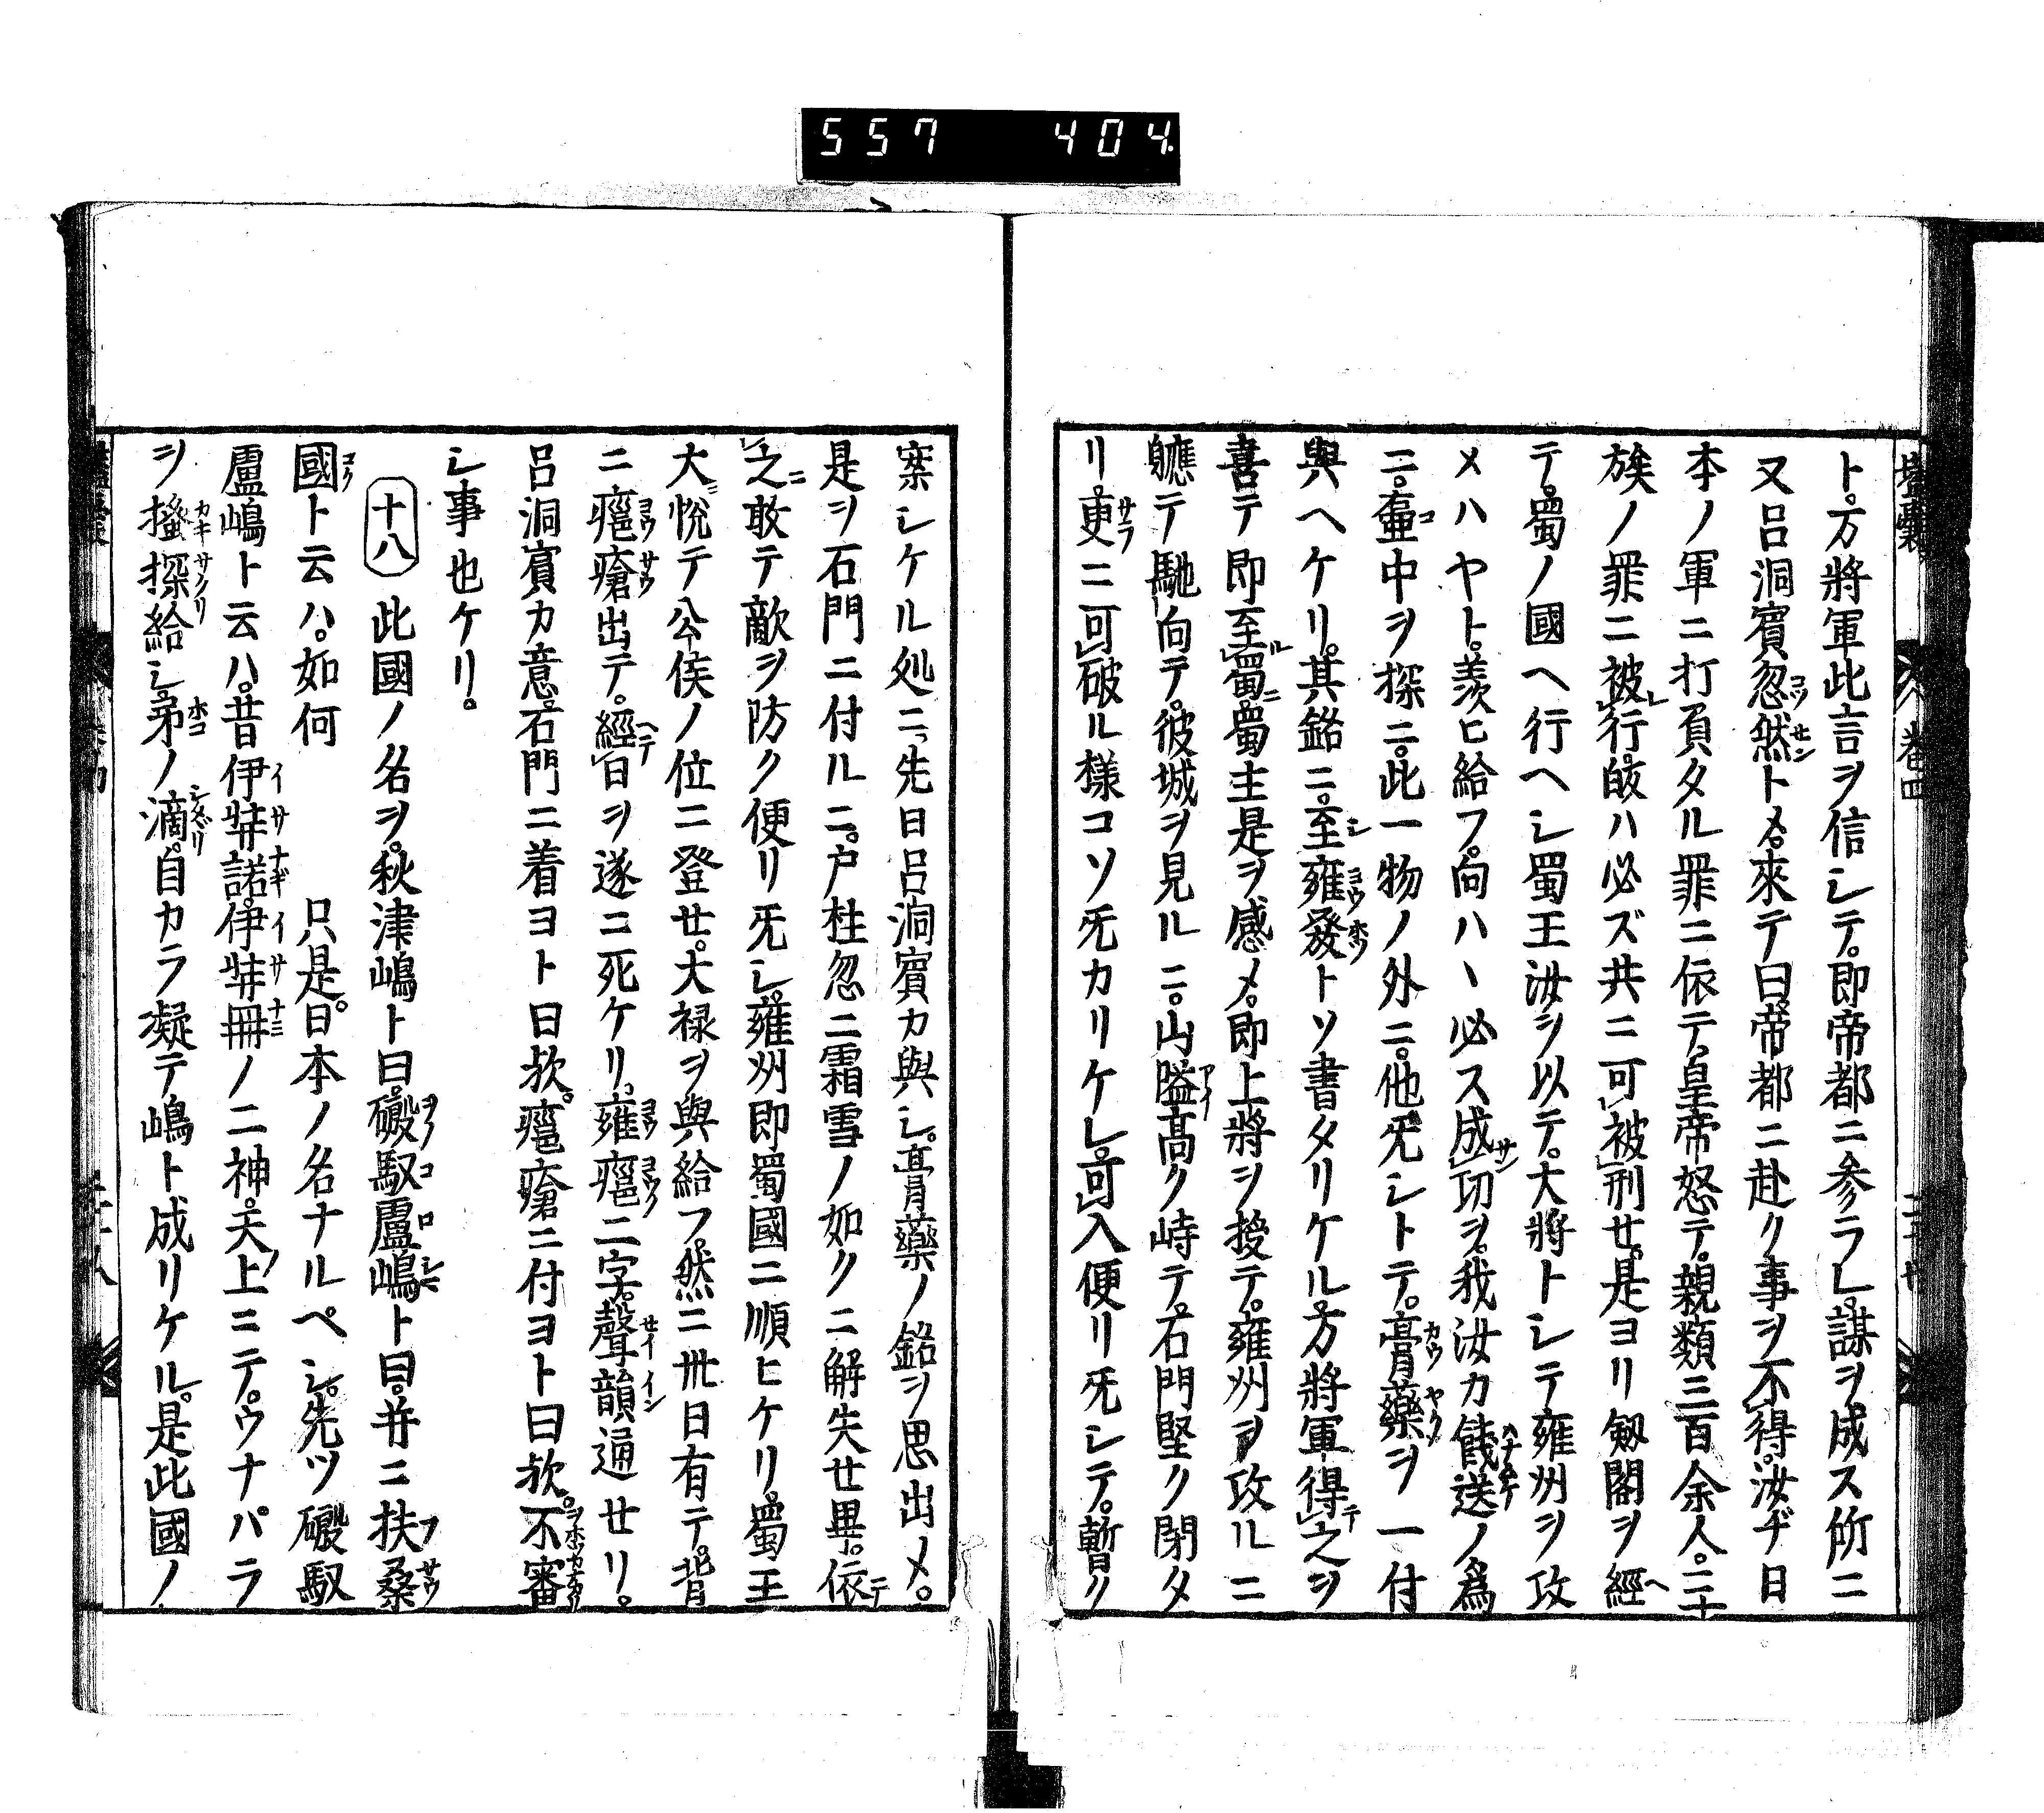 557 404.
ト。方將軍此言ヲ信シテ。即帝都ニ参ラレ。謀ヲ成ス所ニ
又呂洞賓忽然トメ。來テ曰。帝都ニ赴ク事ヲ不得。汝ヂ日
本ノ軍ニ打負タル罪ニ依テ。皇帝怒テ。親類三百余人。二十
族ノ罪ニ被行。皈ハ必ズ共ニ可被刑セ。是ヨリ剱閣ヲ經
テ。蜀ノ國ヘ行ヘシ蜀王汝ヲ以テ。大將トシテ雍州ヲ攻
メハヤト。羨ヒ給フ。向ハヽ必ス成切ヲ。我汝カ餞送ノ爲
ニ。壷中ヲ探ニ。此一物ノ外ニ。他旡シトテ。膏藥ヲ一付
與ヘケリ。其銘ニ。至雍發トソ書タリケル。方將軍得之ヲ
喜テ即至蜀。蜀主是ヲ感メ。即上將ヲ授テ。雍州ヲ攻ルニ
軈テ馳向テ。彼城ヲ見ルニ。山隘高ク峙テ。石門堅ク閉タ
リ。更ニ可破ル様コソ旡カリケレ。可入便リ旡シテ。暫ク
寨シケル処ニ、先日呂洞賓カ與シ。膏藥ノ銘ヲ思出メ。
是ヲ石門ニ付ルニ。戸柱忽ニ霜雪ノ如クニ解失セ畢。依
之敢テ敵ヲ防ク便リ旡シ。雍州即蜀國ニ順ヒケリ。蜀王
大悅テ公侯ノ位ニ登セ。大禄ヲ與給フ。然ニ卅日有テ。背
ニ癰瘡出テ。經日ヲ遂ニ死ケリ。雍癰二字。聲韻通セリ。
呂洞賓カ意。石門ニ着ヨト曰歟。癰瘡ニ付ヨト曰歟。不審
シ事也ケリ。
十八 此國ノ名ヲ。秋津嶋ト曰。磤馭盧嶋ト曰。并ニ扶桑
國ト云ハ。如何 只是。日本ノ名ナルベシ。先ツ磤馭
盧嶋ト云ハ。昔伊弉諾。伊弉冊ノ二神。天上ニテ。ウナバラ
ヲ搔探給シ。矛ノ滴。自カラ凝テ嶋ト成リケル。是此國ノ